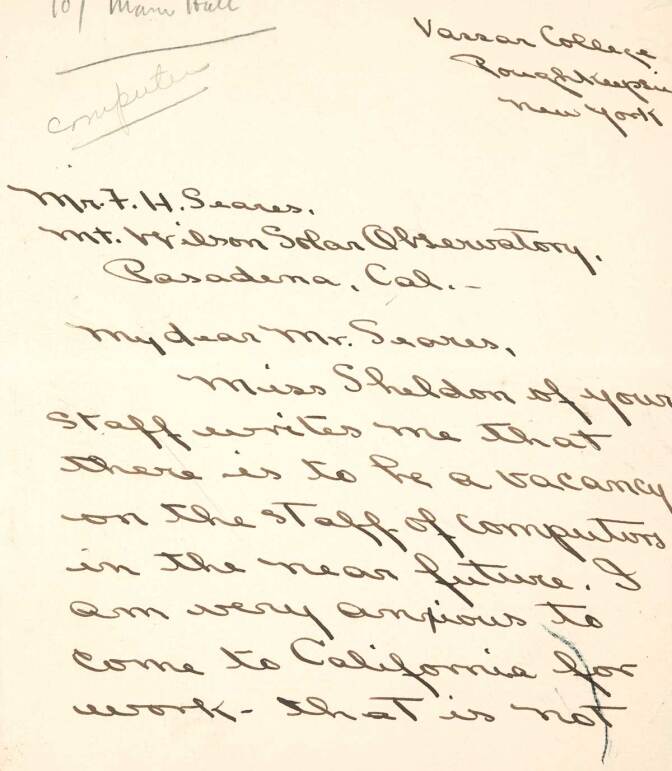 107 Main Hall
Vassar College
Poughkeepsie
New York
computer
Mr. F. H. Seares,
Mt. Wilson Solar Observatory,
Pasadena, Cal.—
My dear Mr. Seares,
Miss Sheldon of your
staff writes me that
there is to be a vacancy
on the staff of computors
in the near future. I
am very anxious to
come to California for
work - that is not